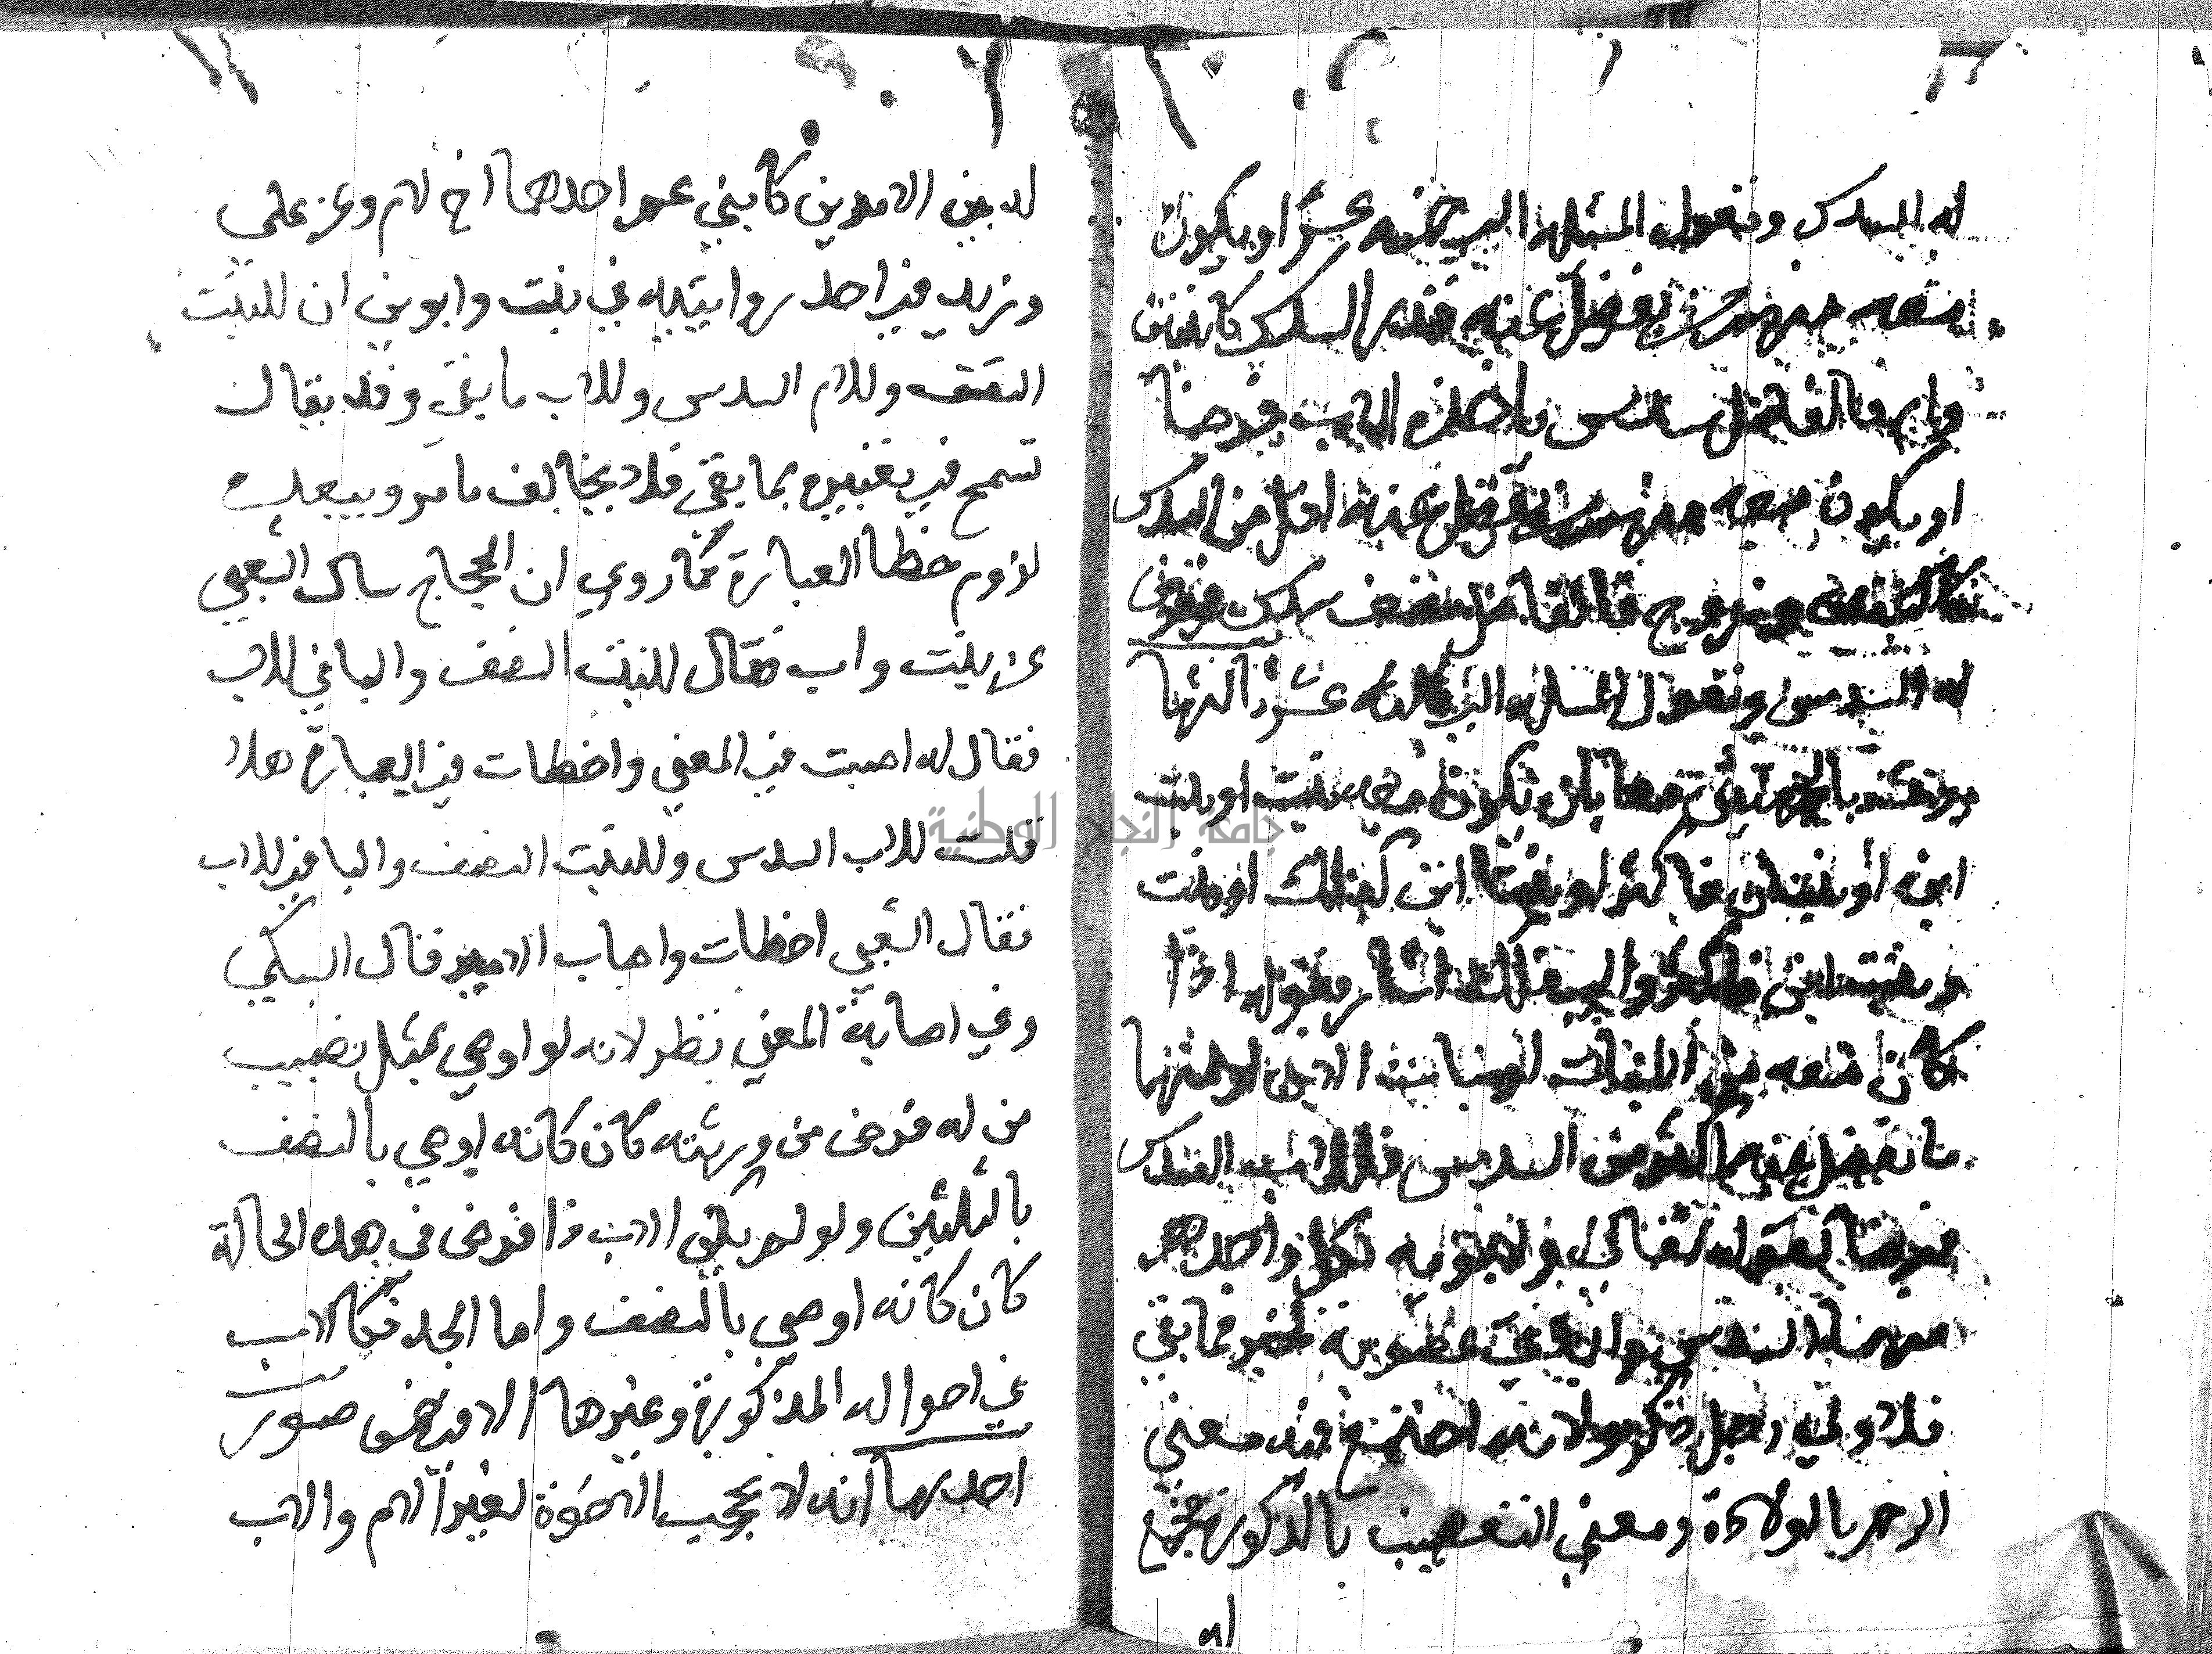 له السدس وتعول المسئلة الى خمسة عشر او يكون
معه من يفضل عنه قدر السدس كابنتين
وام فالفاضل سدس ياخذه الاب فرضا
او يكون معه من يفضل عنه اقل من السدس
كابنتين وزوج فالفاضل نصف سدس فيفرض
له السدس وتعول المسئلة الى ثلاثة عشر ثالثها
يرث بالجهتين معا بان يكون معه بنت او بنت
ابن او بنتان فاكثر او بنتا ابن كذلك او بنت
وبنت ابن فاكثر والى ذلك اشار بقوله اذا
كان معه من البنات او بنات الابن او منهما
ما يفضل عنه اكثر من السدس فللاب السدس
فرضا لقوله تعالى ولابويه لكل واحد
منهما السدس والباقي عصوبة لخبر فما بقي
فلاولي رجل ذكر ولانه اجتمع فيه معنى
الرحم بالولادة ومعنى التعصيب بالذكورة فجمع
له
له بين الامرين كابني عم احدهما اخ لام وعن علي
وزيد في احدى روايتيه في بنت وابوين ان للبنت
النصف وللام السدس وللاب ما بقي وقد يقال
تسمح في تعبيره بما بقي فلا يخالف ما مر ويبعده
لزوم خطا العبارة كما روي ان الحجاج سال الشعبي
عن بنت واب فقال للبنت النصف والباقي للاب
فقال له اصبت في المعنى واخطات في العبارة هلا
قلت للاب السدس وللبنت النصف والباقي للاب
فقال الشعبي اخطات واصاب الامير قال السبكي
وفي اصابة المعنى نظر لانه لو اوصى بمثل نصيب
من له فرض من ورثته كان كانه اوصى بالنصف
بالثلثين ولو لم يكن الاب ذا فرض في هذه الحالة
كان كانه اوصى بالنصف واما الجد فكالاب
في احواله المذكورة وغيرها الا في خمس صور
احدها انه لا يحجب الاخوة لغير الام والاب
جامعة النجاح الوطنية